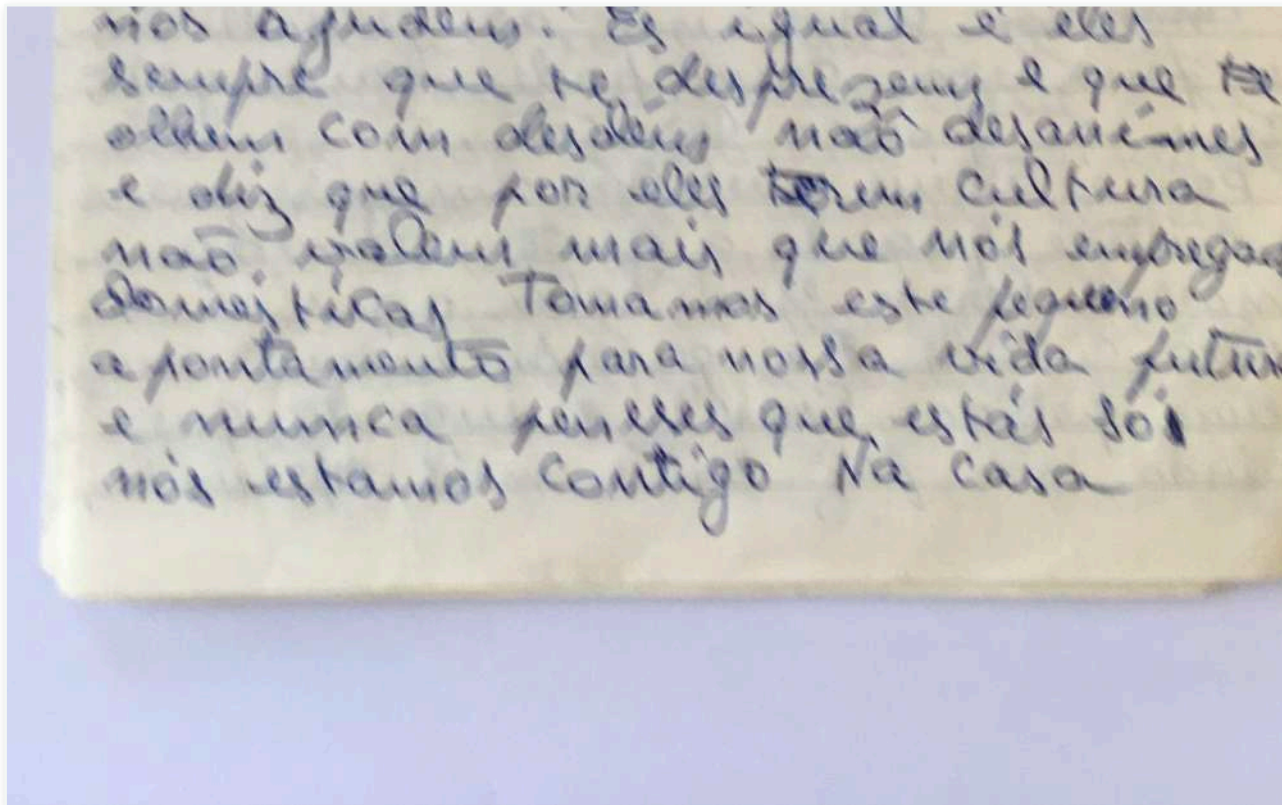 nos ajudem. És igual e eles
sempre que te desprezem e que te
olhem com desdém não desanimes
e diz que por eles terem cultura
não valem mais que nós empregad
domésticas Tomamos este pequeno
apontamento para nossa vida futur
e nunca penses que estás só
nós estamos contigo Na Casa